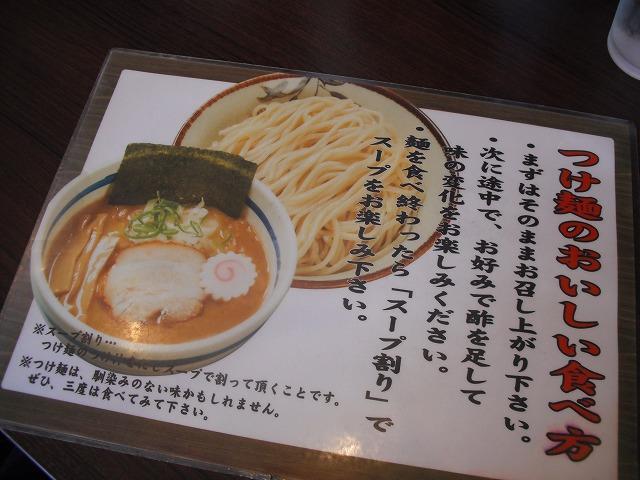 つけ麺のおいしい食べ方
・まずはそのままお召し上がり下さい。
・次に途中で、お好みで酢を足して
味の変化をお楽しみください。
・麺を食べ終わったら「スープ割り」で
スープをお楽しみ下さい。
※スープ割り…
つけ麺のつけ汁をだしスープで割って頂くことです。
※つけ麺は、馴染みのない味かもしれません。
ぜひ、三度は食べてみて下さい。